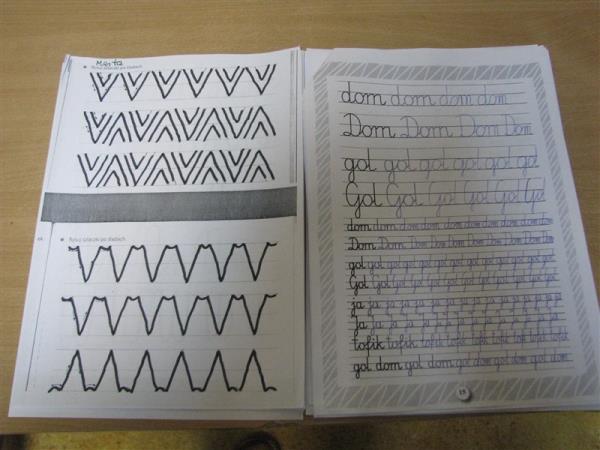 Rysuj szlaczki po śladach.
Rysuj szlaczki po śladach.
dom dom dom dom
Dom Dom Dom Dom
gol gol gol gol gol gol
Gol Gol Gol Gol Gol Gol
dom dom dom dom dom dom dom dom dom
Dom Dom Dom Dom Dom Dom Dom Dom Dom
gol gol gol gol gol gol gol gol gol gol gol
Gol Gol Gol Gol Gol Gol Gol Gol Gol Gol
ja ja ja ja ja ja ja ja ja ja ja ja
Ja Ja Ja Ja Ja Ja Ja Ja Ja Ja Ja
tofik tofik tofik tofik tofik tofik tofik tofik
gol dom gol dom gol dom gol dom